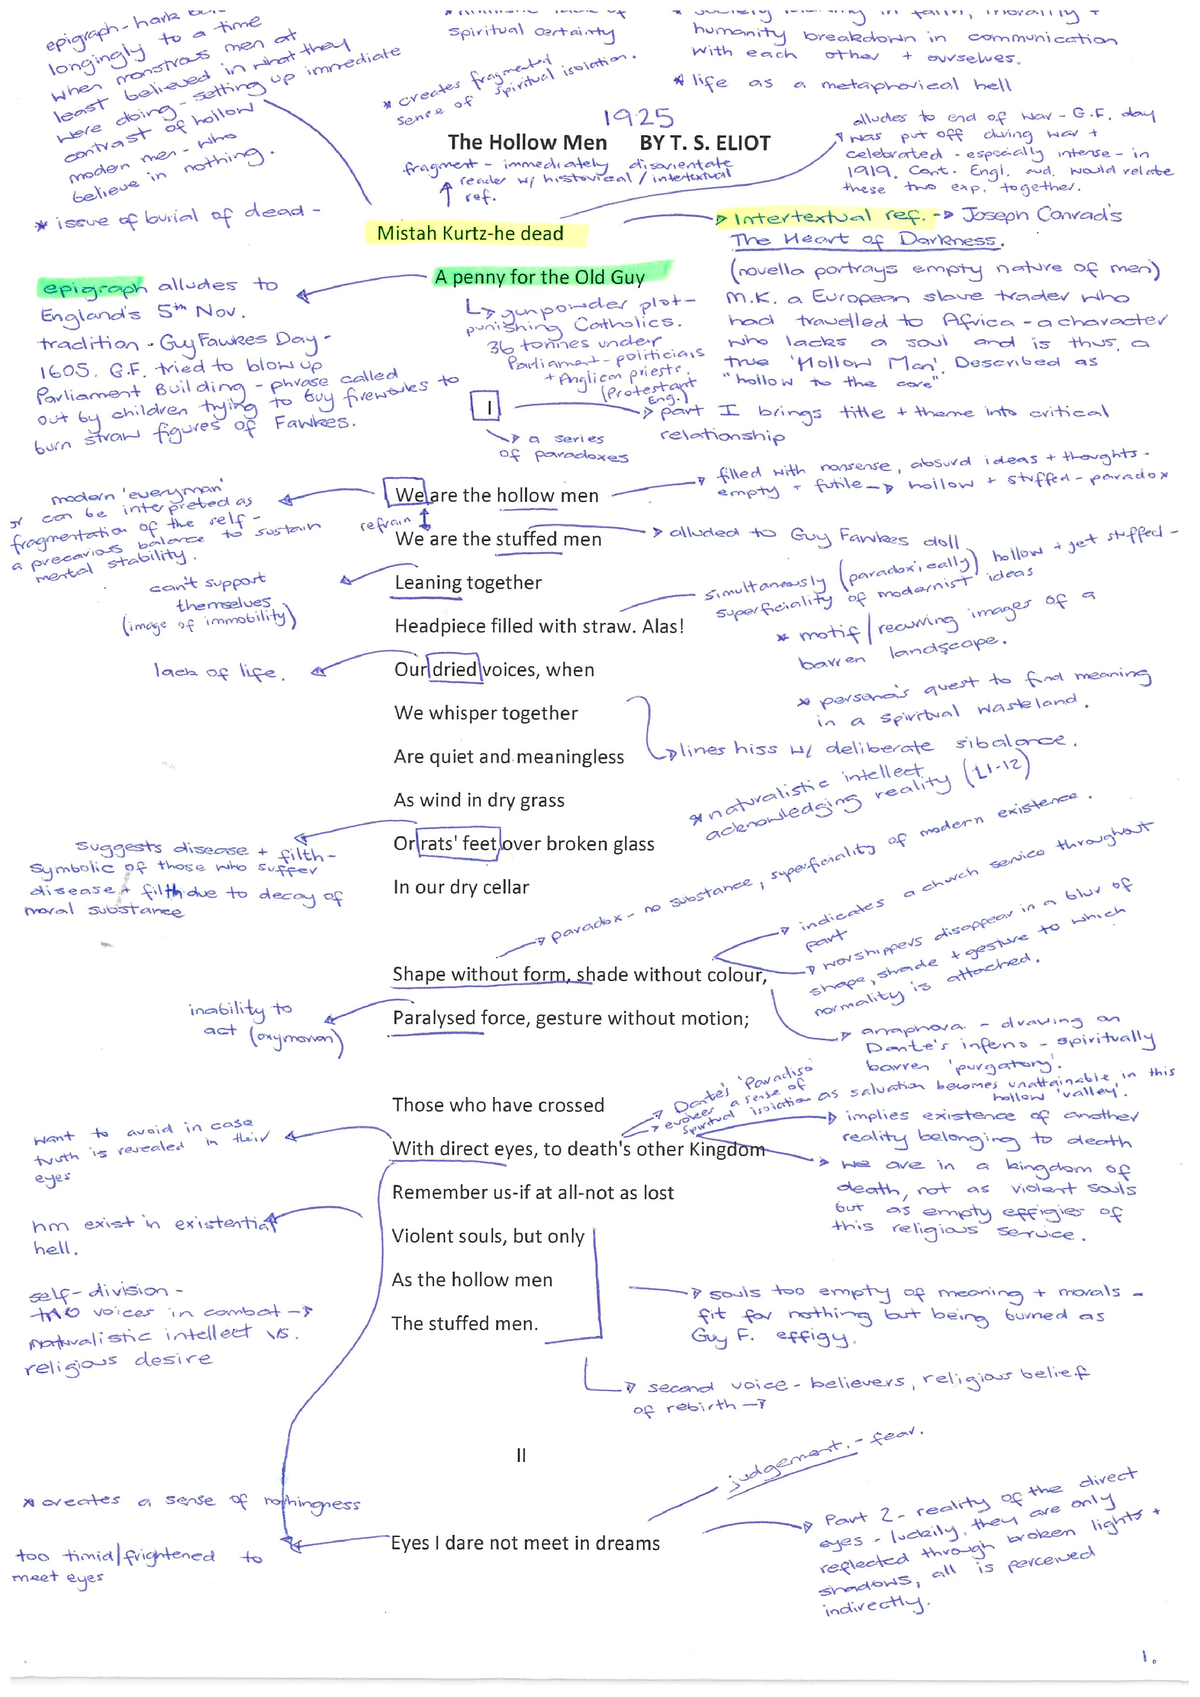 epigraph - hark
longingly to a time
when monstrous men at
least believed in what they
were doing - setting up immediate
contrast of hollow
modern men - who
believe in nothing.
* issue of burial of dead -
spiritual certainty
* creates fragmented
sense of spiritual isolation.
humanity breakdown in communication
with each other + ourselves.
* life as a metaphorical hell
1925
The Hollow Men BY T. S. ELIOT
fragment - immediately disorientate
reader w/ historical / intertextual
ref.
alludes to end of war - G.F. day
was put off during war +
celebrated - especially intense - in
1919. Cont. Engl. aud. would relate
these two exp. together.
Mistah Kurtz-he dead
Intertextual ref. -> Joseph Conrad's
The Heart of Darkness.
(novella portrays empty nature of men)
M.K. a European slave trader who
had travelled to Africa - a character
who lacks a soul and is thus, a
true 'Hollow Man'. Described as
"hollow to the core"
A penny for the Old Guy
epigraph alludes to
England's 5th Nov.
tradition - Guy Fawkes Day -
1605. G.F. tried to blow up
Parliament Building - phrase called
out by children trying to buy fireworks to
burn straw figures of Fawkes.
gunpowder plot -
punishing Catholics.
36 tonnes under
Parliament - politicians
+ Anglican priests.
(Protestant
Eng.)
I
part I brings title + theme into critical
relationship
a series
of paradoxes
We are the hollow men
filled with nonsense, absurd ideas + thoughts -
empty + futile -> hollow + stuffed - paradox
modern 'everyman'
or can be interpreted as
fragmentation of the self -
a precarious balance to sustain
mental stability.
refrain
We are the stuffed men
alluded to Guy Fawkes doll
Leaning together
can't support
themselves
(image of immobility)
simultaneously (paradoxically) hollow + yet stuffed -
superficiality of modernist ideas
Headpiece filled with straw. Alas!
* motif / recurring images of a
barren landscape.
Our dried voices, when
lack of life.
* persona's quest to find meaning
in a spiritual wasteland.
We whisper together
lines hiss w/ deliberate sibalance.
Are quiet and meaningless
* naturalistic intellect
acknowledging reality (L1-12)
As wind in dry grass
Or rats' feet over broken glass
suggests disease + filth -
symbolic of those who suffer
disease + filth due to decay of
moral substance
In our dry cellar
paradox - no substance, superficiality of modern existence.
indicates a church service throughout
part
worshippers disappear in a blur of
shape, shade + gesture to which
normality is attached.
Shape without form, shade without colour,
inability to
act (oxymoron)
Paralysed force, gesture without motion;
anaphora. - drawing on
Dante's inferno - spiritually
barren 'purgatory'.
Dante's 'Paradiso'
evokes a sense of
spiritual isolation as salvation becomes unattainable in this
hollow 'valley'.
Those who have crossed
implies existence of another
reality belonging to death
want to avoid in case
truth is revealed in their
eyes
With direct eyes, to death's other Kingdom
we are in a kingdom of
death, not as violent souls
but as empty effigies of
this religious service.
Remember us-if at all-not as lost
hm exist in existential
hell.
Violent souls, but only
As the hollow men
self-division -
two voices in combat ->
naturalistic intellect vs.
religious desire
souls too empty of meaning + morals -
fit for nothing but being burned as
Guy F. effigy.
The stuffed men.
second voice - believers, religious belief
of rebirth ->
II
judgement. - fear.
* creates a sense of nothingness
Eyes I dare not meet in dreams
too timid/frightened to
meet eyes
Part 2 - reality of the direct
eyes - luckily, they are only
reflected through broken lights +
shadows, all is perceived
indirectly.
1.